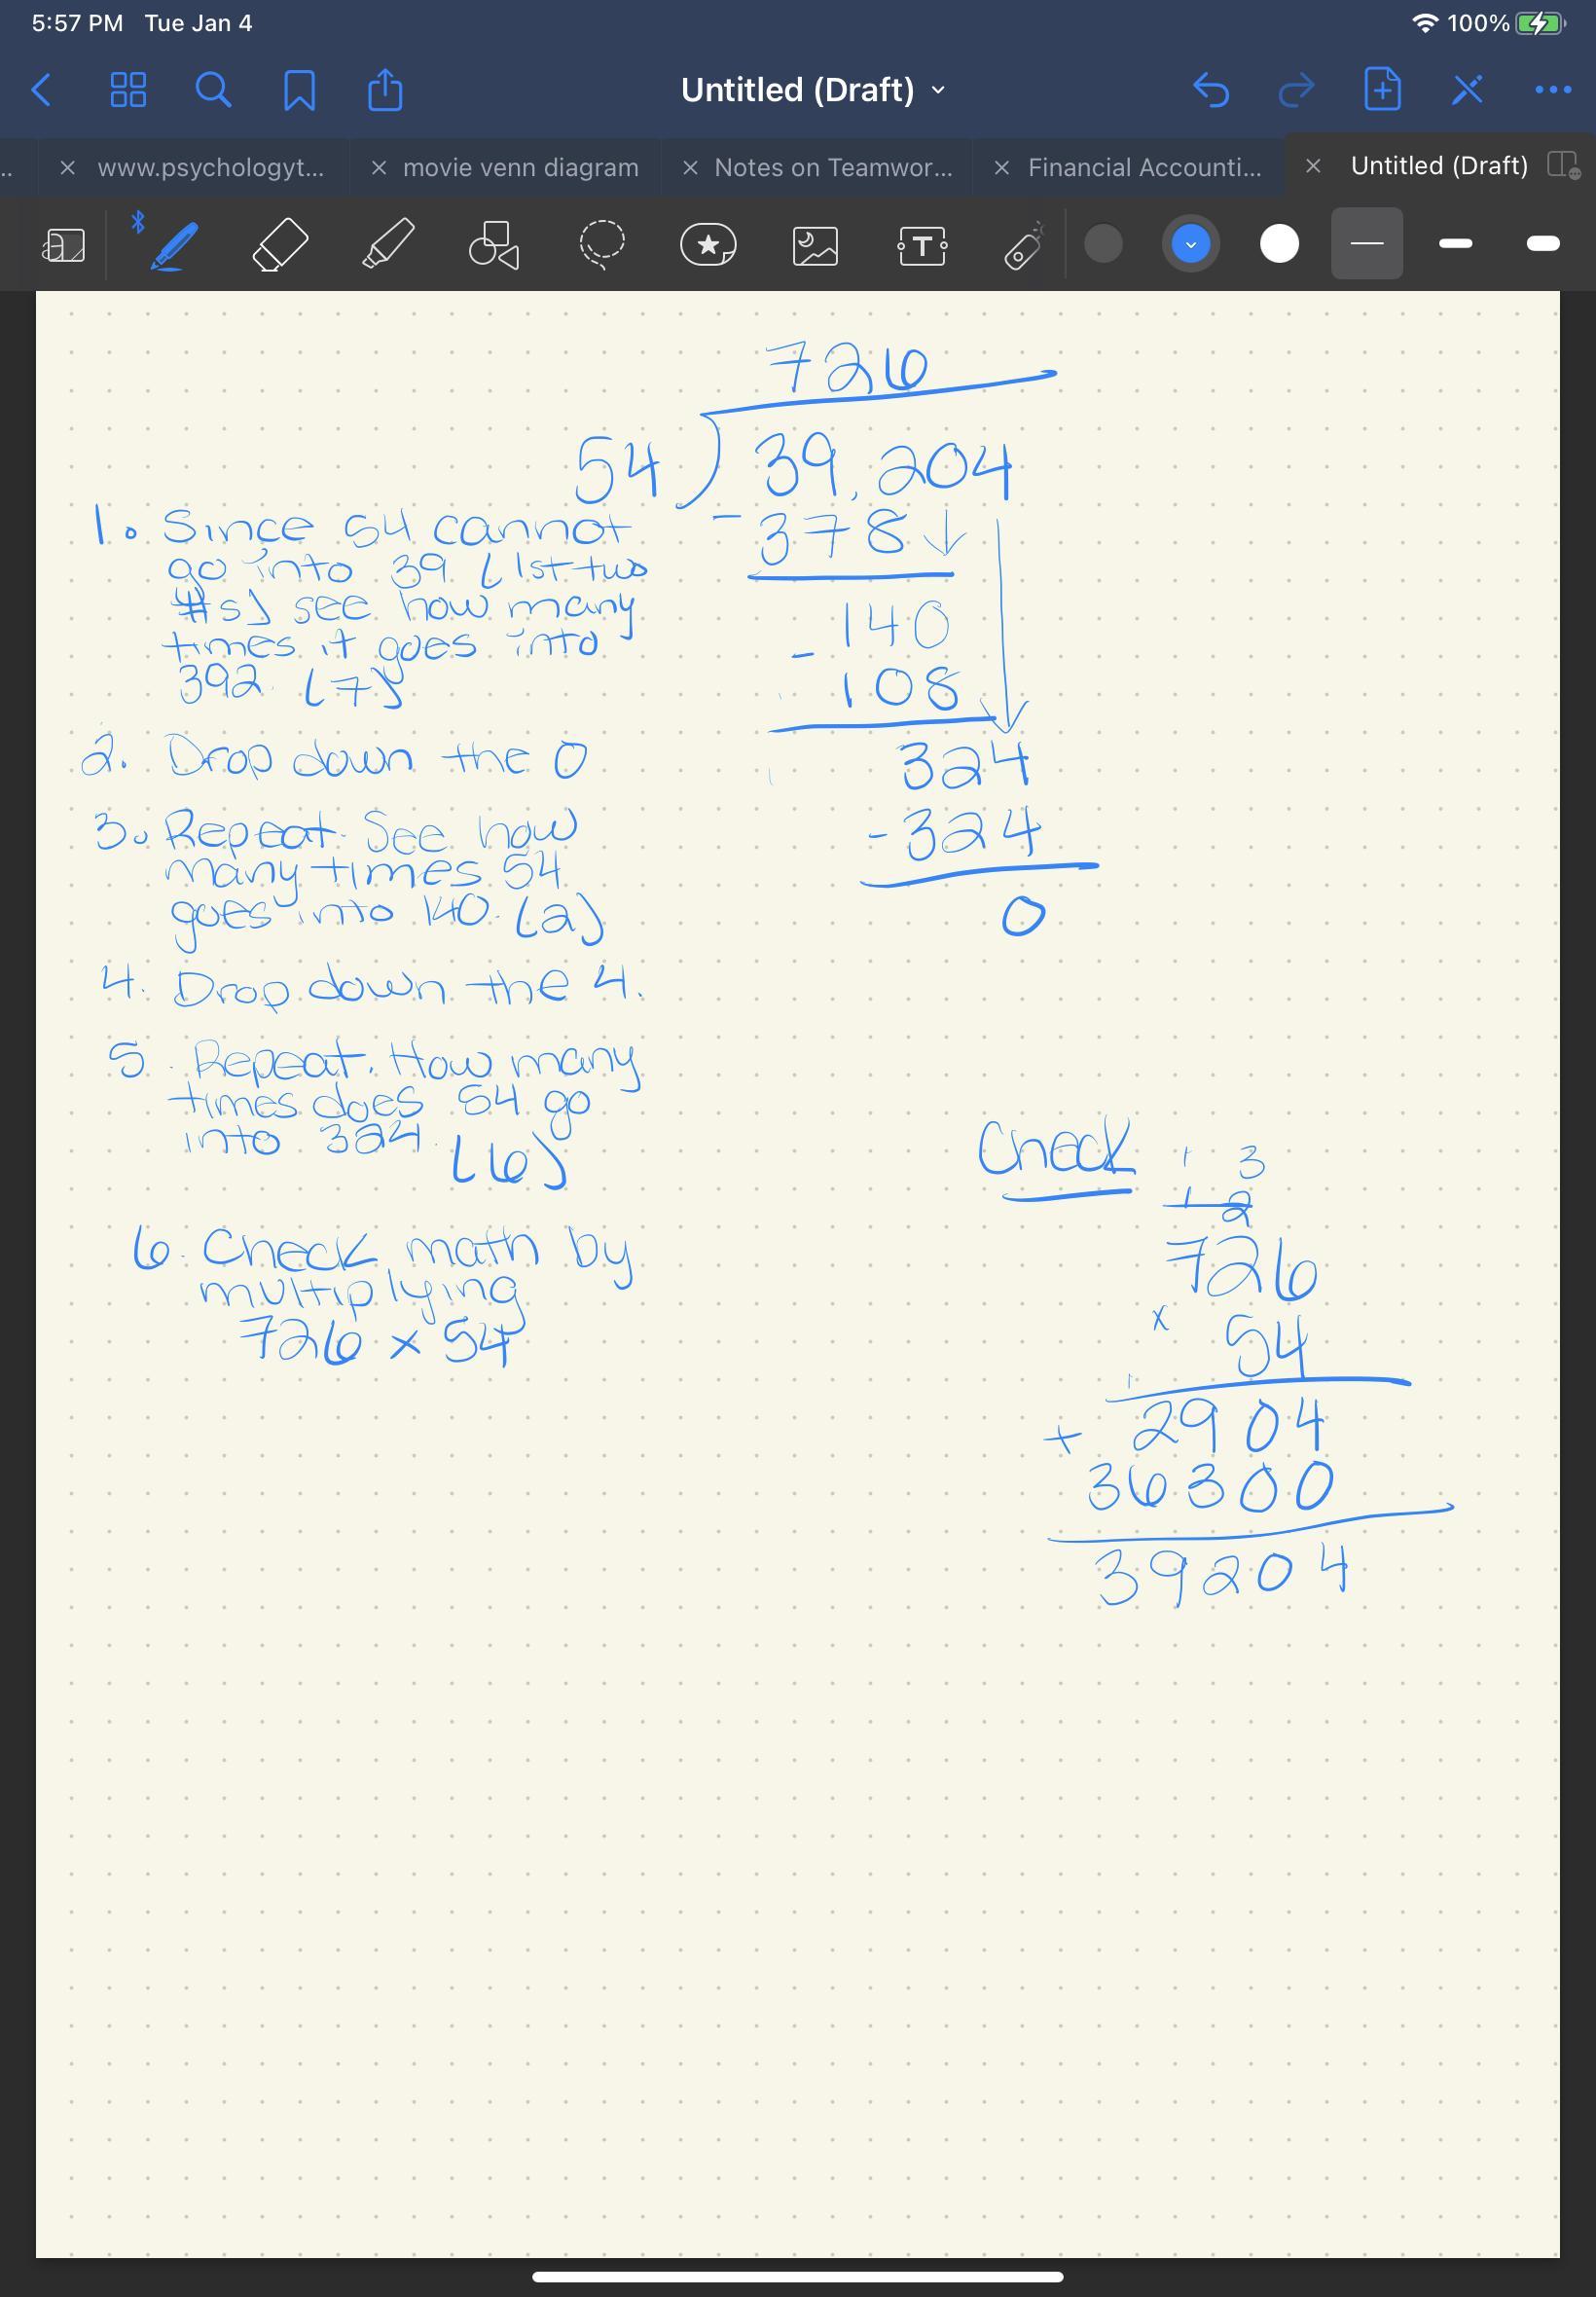 5:57 PM Tue Jan 4
100%
Untitled (Draft)
..
www.psychologyt...
movie venn diagram
Notes on Teamwor...
Financial Accounti...
Untitled (Draft)
726
54 ) 39,204
- 378
140
- 108
324
- 324
0
1. Since 54 cannot
go into 39 (1st two
#s) see how many
times it goes into
392. (7)
2. Drop down the 0
3. Repeat. See how
many times 54
goes into 140. (2)
4. Drop down the 4.
5. Repeat. How many
times does 54 go
into 324. (6)
6. Check math by
multiplying
726 x 54
Check
1 3
1 2
726
x 54
1
2904
+ 36300
39204